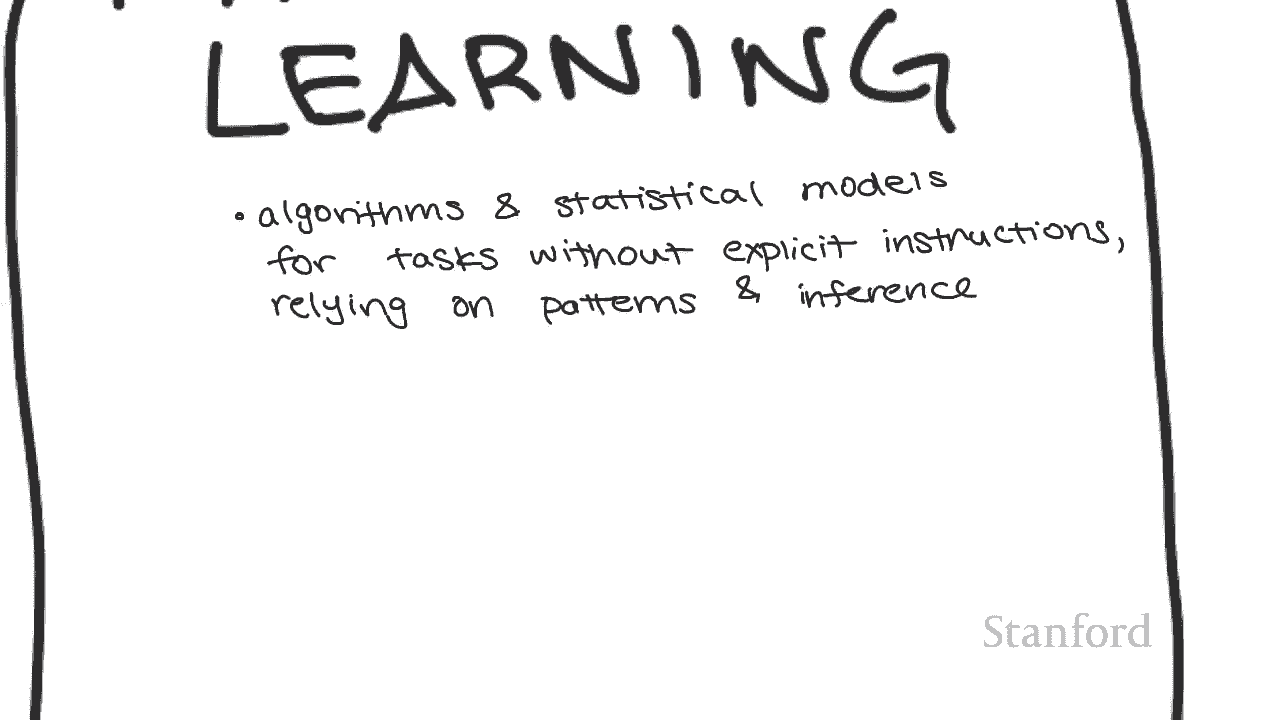 LEARNING
• algorithms & statistical models
for tasks without explicit instructions,
relying on patterns & inference
Stanford